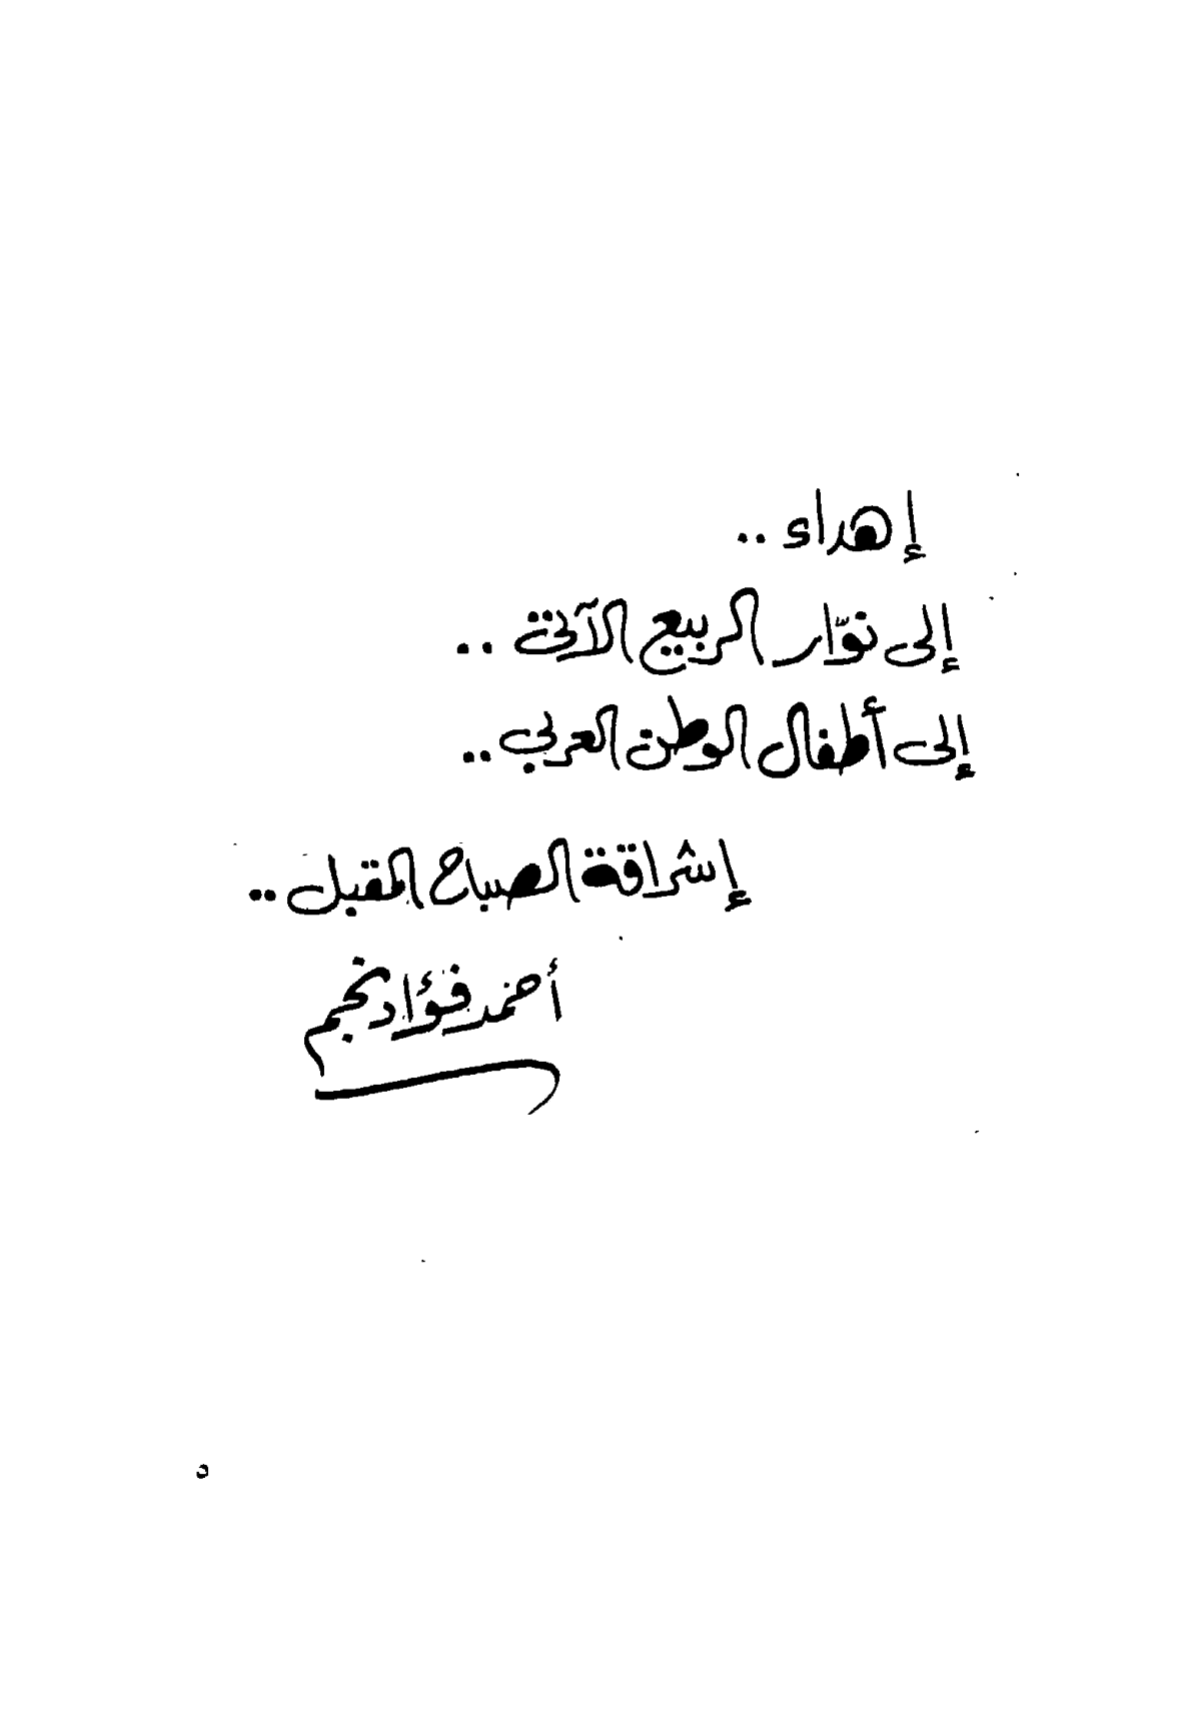 إهداء ..
إلى نوّار الربيع الآتى ..
إلى أطفال الوطن العربي ..
إشراقة الصباح المقبل ..
أحمد فؤاد نجم
٥